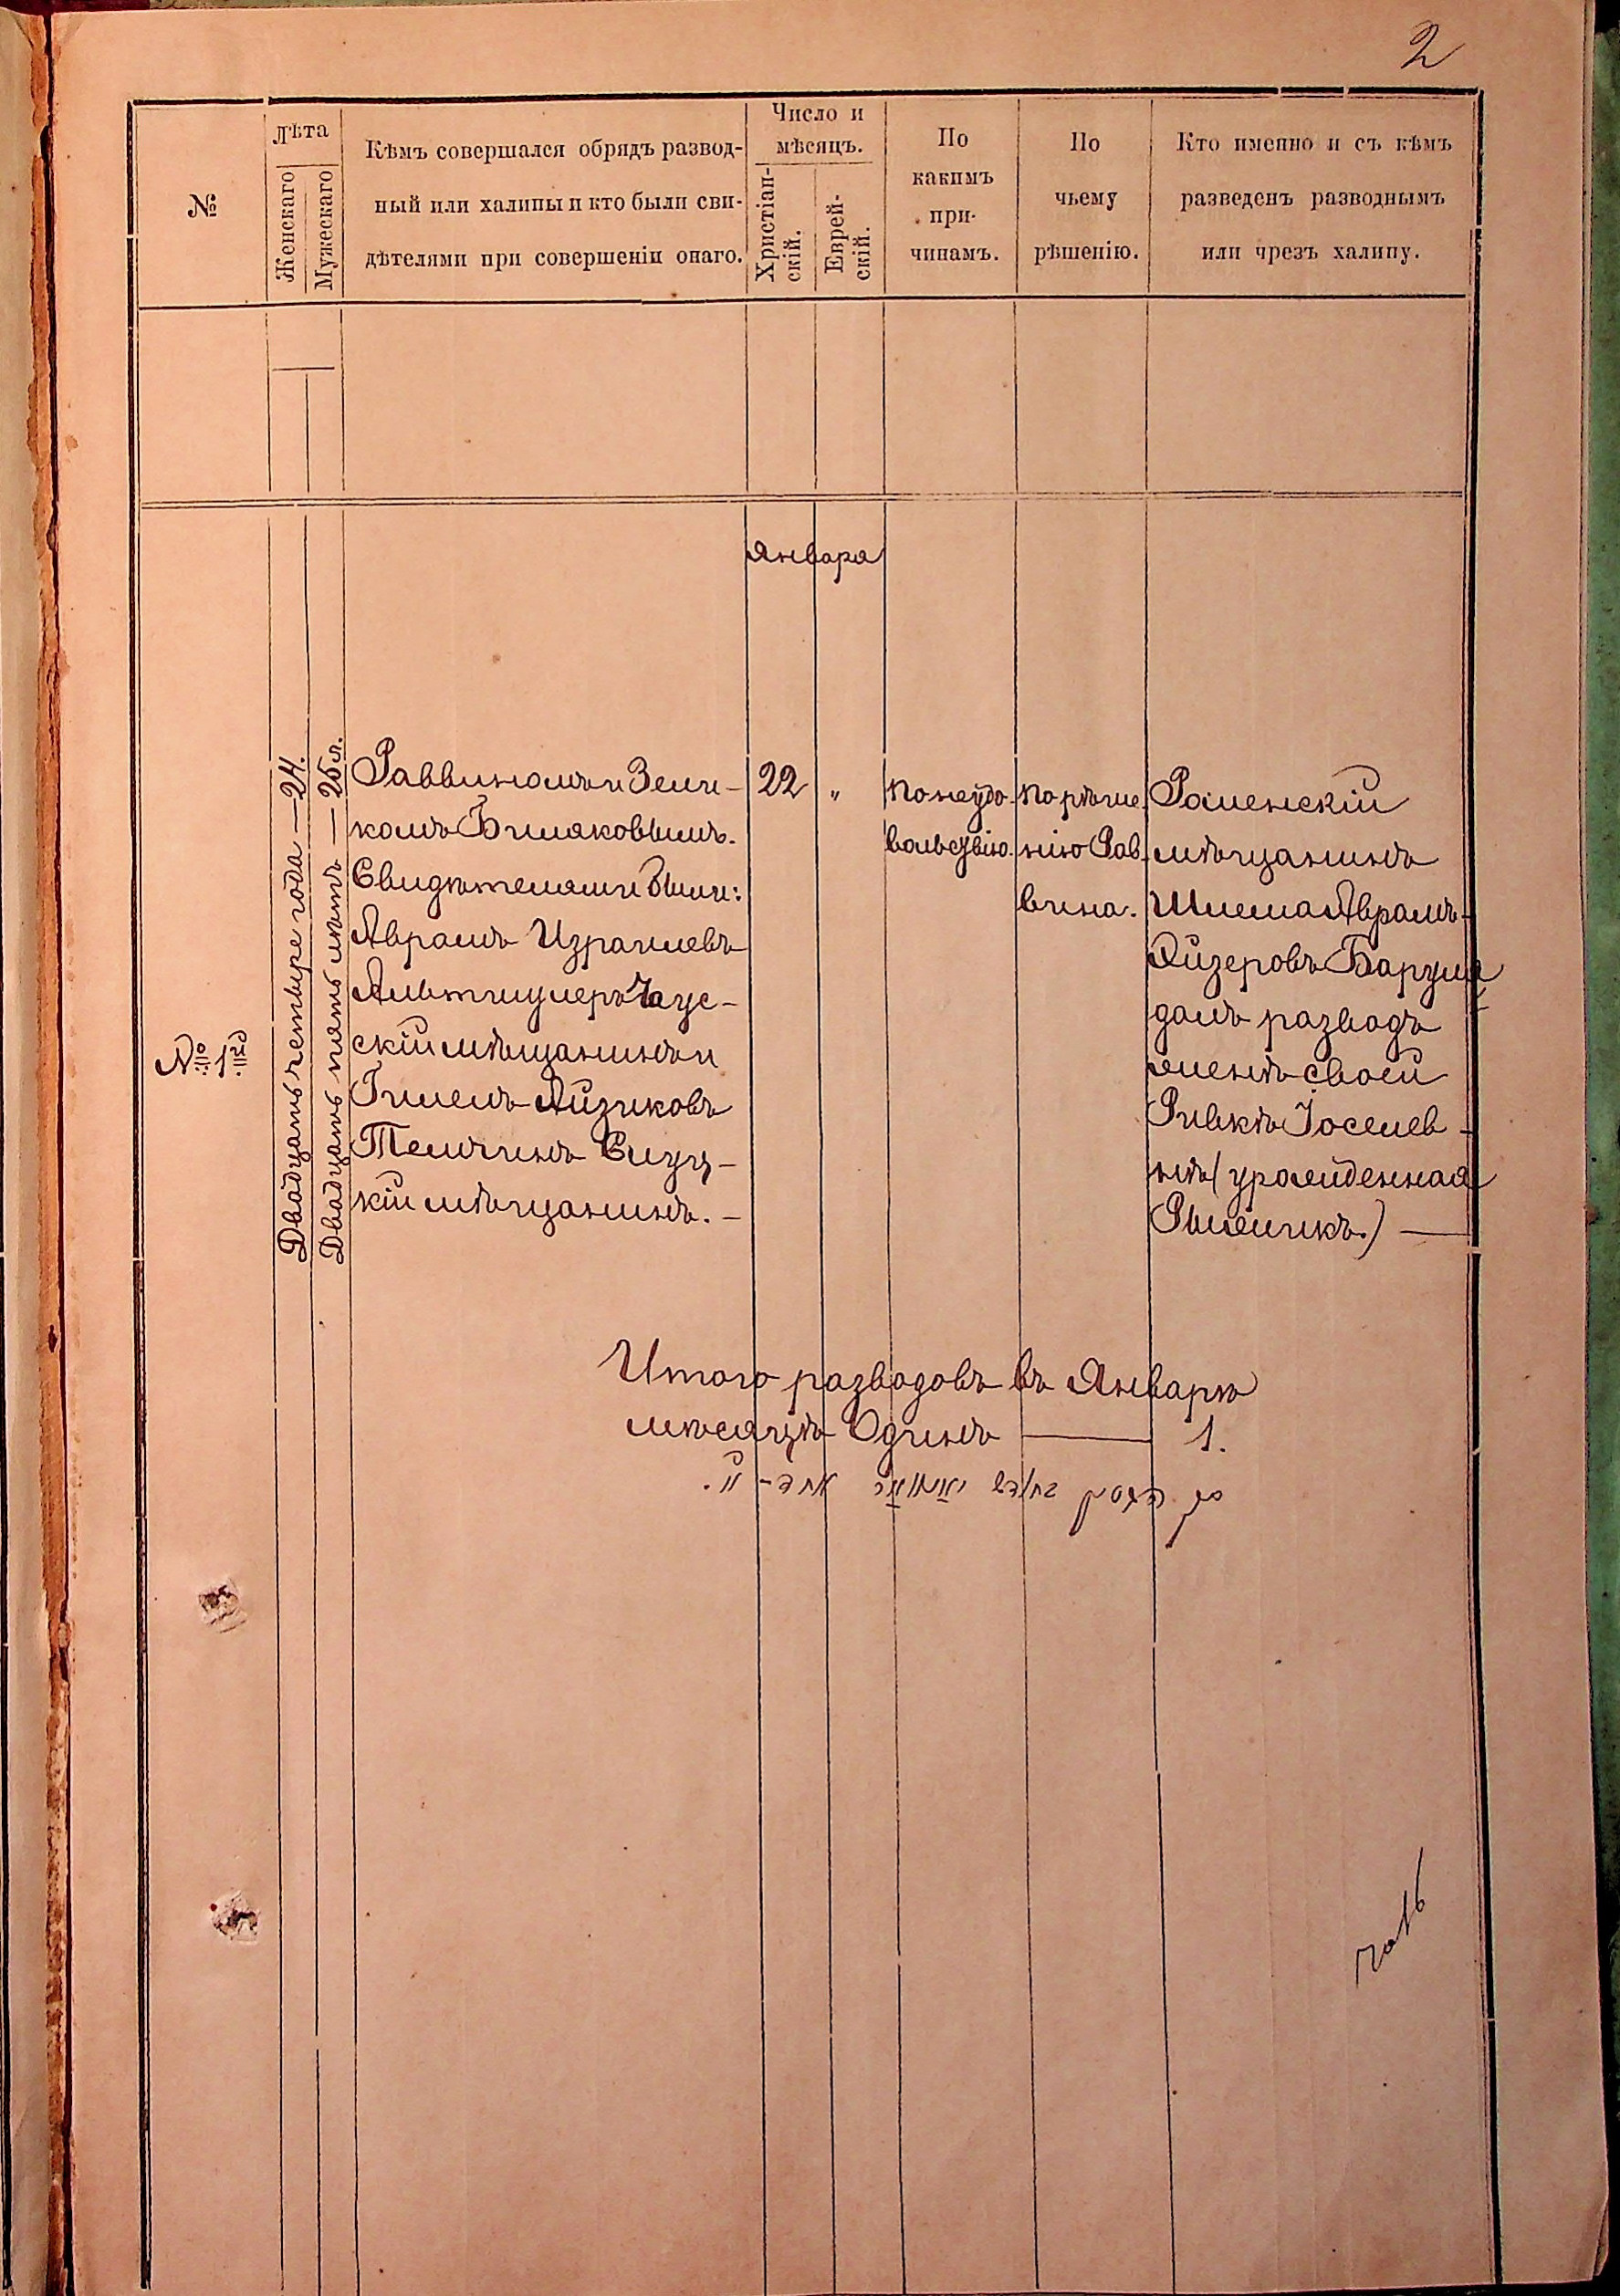 2
№
Лѣта
Женскаго
Мужескаго
Кѣмъ совершался обрядъ развод-
ный или халицы и кто были сви-
дѣтелями при совершеніи онаго.
Число и
мѣсяцъ.
Христіан-
скій.
Еврей-
скій.
По
какимъ
при-
чинамъ.
По
чьему
рѣшенію.
Кто именно и съ кѣмъ
разведенъ разводнымъ
или чрезъ халицу.
Января
№ 1й
Двадцать четыре года — 24.
Двадцать пять лѣтъ — 25 л.
Раввиномъ Зели-
комъ
Свидѣтелями были:
Аврамъ Израилевъ
Альтшулеръ Чаус-
скій мѣщанинъ и
Гилелъ Айзиковъ
Телічинъ Слуц-
кій мѣщанинъ. —
22
"
По неудо-
вольствію.
По рѣше-
нію Рав-
вина.
Роменскій
мѣщанинъ
Шлема Аврамъ-
Лйзеровъ
далъ разводъ
женѣ своей
Ривкѣ Іоселев-
нѣ (урожденная
Итого разводовъ въ Январѣ
мѣсяцѣ Одинъ — 1.